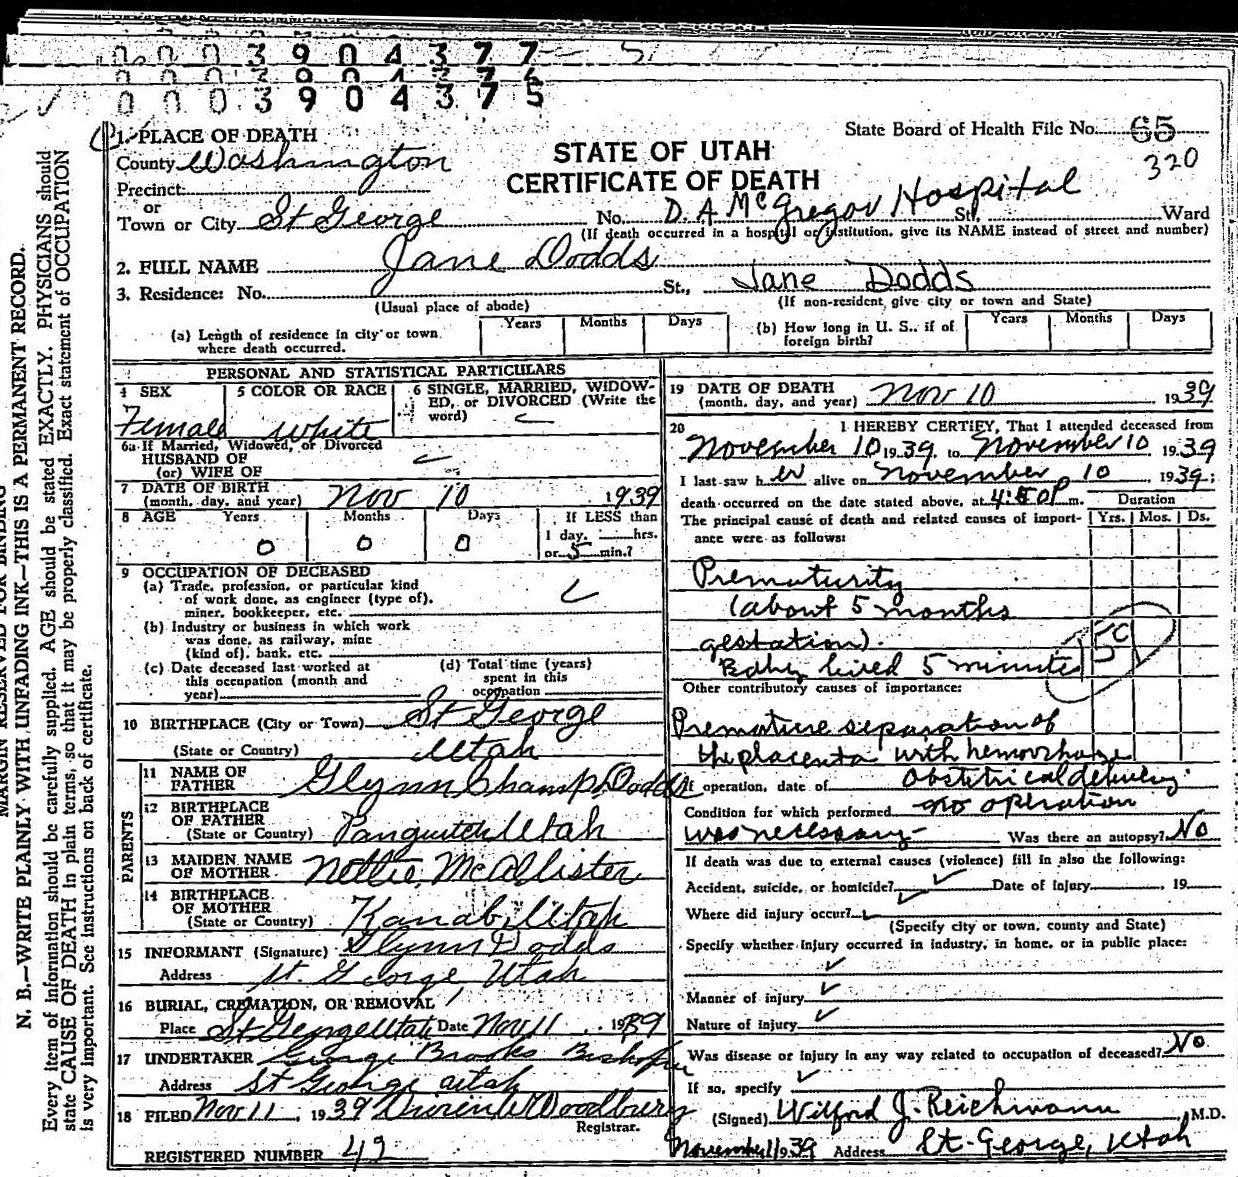 0 0 0 3 9 0 4 3 7 7
0 0 0 3 9 0 4 3 7 6
0 0 0 3 9 0 4 3 7 5
1. PLACE OF DEATH
County Washington
Precinct
or
Town or City St George
State Board of Health File No. 65
320
STATE OF UTAH
CERTIFICATE OF DEATH
No. D. A McGregor Hospital St. Ward
(If death occurred in a hospital or institution, give its NAME instead of street and number)
2. FULL NAME Jane Dodds
3. Residence: No. St., Jane Dodds
(Usual place of abode) (If non-resident give city or town and State)
(a) Length of residence in city or town where death occurred. Years Months Days
(b) How long in U. S., if of foreign birth? Years Months Days
MARGIN RESERVED FOR BINDING
N. B.—WRITE PLAINLY WITH UNFADING INK—THIS IS A PERMANENT RECORD.
Every item of information should be carefully supplied. AGE should be stated EXACTLY. PHYSICIANS should
state CAUSE OF DEATH in plain terms, so that it may be properly classified. Exact statement of OCCUPATION
is very important. See instructions on back of certificate.
PERSONAL AND STATISTICAL PARTICULARS
4 SEX Female
5 COLOR OR RACE white
6 SINGLE, MARRIED, WIDOW-
ED, or DIVORCED (Write the
word)
6a If Married, Widowed, or Divorced
HUSBAND OF
(or) WIFE OF
7 DATE OF BIRTH
(month, day, and year) Nov 10 1939
8 AGE Years Months Days If LESS than
0 0 0 1 day, hrs.
or 5 min.?
9 OCCUPATION OF DECEASED
(a) Trade, profession, or particular kind
of work done, as engineer (type of),
miner, bookkeeper, etc.
(b) Industry or business in which work
was done, as railway, mine
(kind of), bank, etc.
(c) Date deceased last worked at
this occupation (month and
year)
(d) Total time (years)
spent in this
occupation
10 BIRTHPLACE (City or Town) St George
(State or Country) Utah
PARENTS
11 NAME OF
FATHER Glynn Champ Dodds
12 BIRTHPLACE
OF FATHER
(State or Country) Panguitch Utah
13 MAIDEN NAME
OF MOTHER Nettie McAllister
14 BIRTHPLACE
OF MOTHER
(State or Country) Kanab Utah
15 INFORMANT (Signature) Glynn Dodds
Address St. George, Utah
16 BURIAL, CREMATION, OR REMOVAL
Place St George Utah Date Nov 11 1939
17 UNDERTAKER George Brooks Bishop
Address St George utah
18 FILED Nov 11, 1939 Woodbury
Registrar.
REGISTERED NUMBER 49
19 DATE OF DEATH
(month, day, and year) Nov 10 1939
20 I HEREBY CERTIFY, That I attended deceased from
November 10 1939, to November 10 1939
I last saw her alive on November 10 1939;
death occurred on the date stated above, at m. Duration
The principal cause of death and related causes of import- Yrs. Mos. Ds.
ance were as follows:
Prematurity
(about 5 months
gestation).
Baby lived 5 minutes
Other contributory causes of importance:
Premature separation of
the placenta with hemorrhage
If operation, date of Obstetrical delivery
Condition for which performed no operation
was necessary Was there an autopsy? No
If death was due to external causes (violence) fill in also the following:
Accident, suicide, or homicide? Date of injury , 19
Where did injury occur?
(Specify city or town, county and State)
Specify whether injury occurred in industry, in home, or in public place:
Manner of injury
Nature of injury
Was disease or injury in any way related to occupation of deceased? No
If so, specify
(Signed) Wilford J. Reichmann, M.D.
November 11 1939 Address St. George, Utah